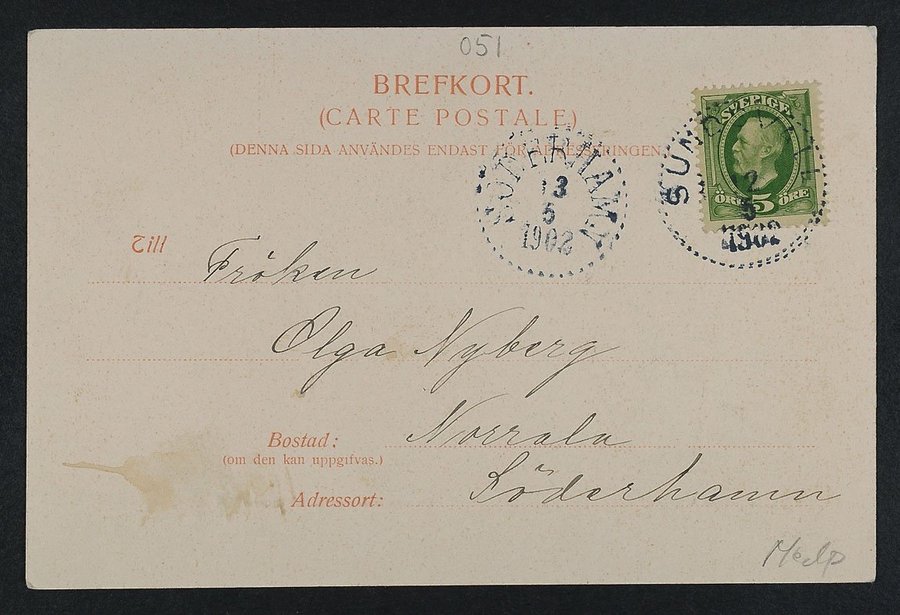 051
BREFKORT.
(CARTE POSTALE)
(DENNA SIDA ANVÄNDES ENDAST FÖR ADRESSERINGEN.)
SVERIGE
ÖRE 5 ÖRE
SUNDSVALL
2
5
1902
SÖDERHAMN
3
5
1902
Till
Fröken
Olga Nyberg
Bostad:
Norrala
(om den kan uppgifvas.)
Adressort:
Söderhamn